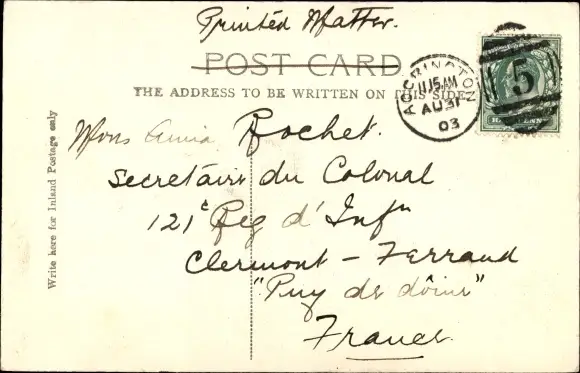 Printed Matter.
POST CARD
THE ADDRESS TO BE WRITTEN ON THIS SIDE.
ACCRINGTON
11 15 AM
AU 31
03
5
HALFPENNY
Mons Rochet.
Secretair du Colonal
121e Reg d' Infn
Clermont - Ferrand
"Puy de dôme"
France.
Write here for Inland Postage only